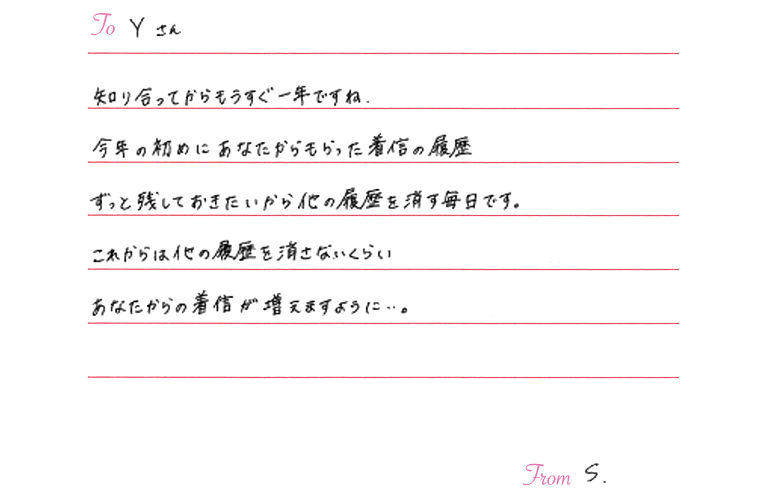 To Y さん
知り合ってからもうすぐ一年ですね.
今年の初めにあなたからもらった着信の履歴
ずっと残しておきたいから他の履歴を消す毎日です。
これからは他の履歴を消さないくらい
あなたからの着信が増えますように‥。
From S.